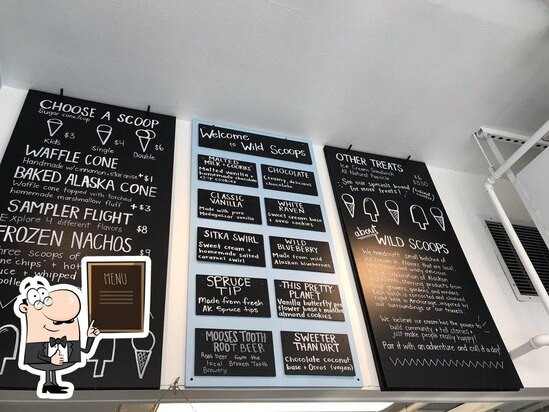 CHOOSE A SCOOP
Sugar cone/cup
Kids $3
Single $4
Double $6
WAFFLE CONE
Handmade w/cinnamon + star anise +$1
BAKED ALASKA CONE
Waffle cone topped with torched
homemade marshmallow fluff +$3
SAMPLER FLIGHT
Explore 4 different flavors $8
FROZEN NACHOS
Three scoops $9
chips + hot
+ whipped
MENU
Welcome
to Wild Scoops
MALTED
MILK + COOKIES
Malted vanilla +
homemade chocolate
chip cookies
CHOCOLATE
Creamy, delicious
chocolate
CLASSIC
VANILLA
Made with pure
Madagascar vanilla
WHITE
RAVEN
Sweet cream base
+ sweet cream + oreos
SITKA SWIRL
Sweet cream +
homemade salted
caramel swirl
WILD
BLUEBERRY
Made from wild
Alaskan blueberries
SPRUCE
TIP
Made from fresh
AK Spruce tips
THIS PRETTY
PLANET
Vanilla butterfly pea
flower base
almond cookies
MOOSES TOOTH
ROOT BEER
Root beer from the
local Broken Tooth
Brewery
SWEETER
THAN DIRT
Chocolate coconut
base + Oreos (vegan)
OTHER TREATS
Ice Cream Sandwich $6
All Natural Popsicle $3.50
See our specials board
for more treats!
about
WILD SCOOPS
We handcraft small batches of
that are local,
and wildly delicious.
of Alaskan
products from
local growers, gardens and vendors.
Each batch is connected and churned
right here in Anchorage inspired by
our surroundings or our travels.
We believe ice cream has the power to
build community + tell stories +
just make people really happy!
Pair it with an adventure and call it a day!